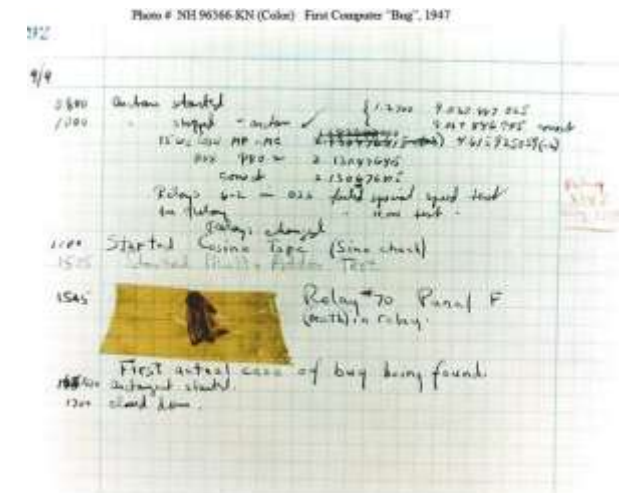 Photo # NH 96566-KN (Color) First Computer "Bug", 1947
92
9/9
0800 Antan started
1000 " stopped - antan ✓ { 1.2700 9.037 847 025
9.037 846 995 correct
13"uc MP - MC 4.615925059(-2)
033 PRO 2 2.130476415
correct 2.130676415
Relays 6-2 in 033 failed special speed test
in relay " test .
Relays changed
1100 Started Cosine Tape (Sine check)
1525 Started Multi Adder Test
1545 Relay #70 Panel F
(moth) in relay.
First actual case of bug being found.
antangent started.
1700 closed down.